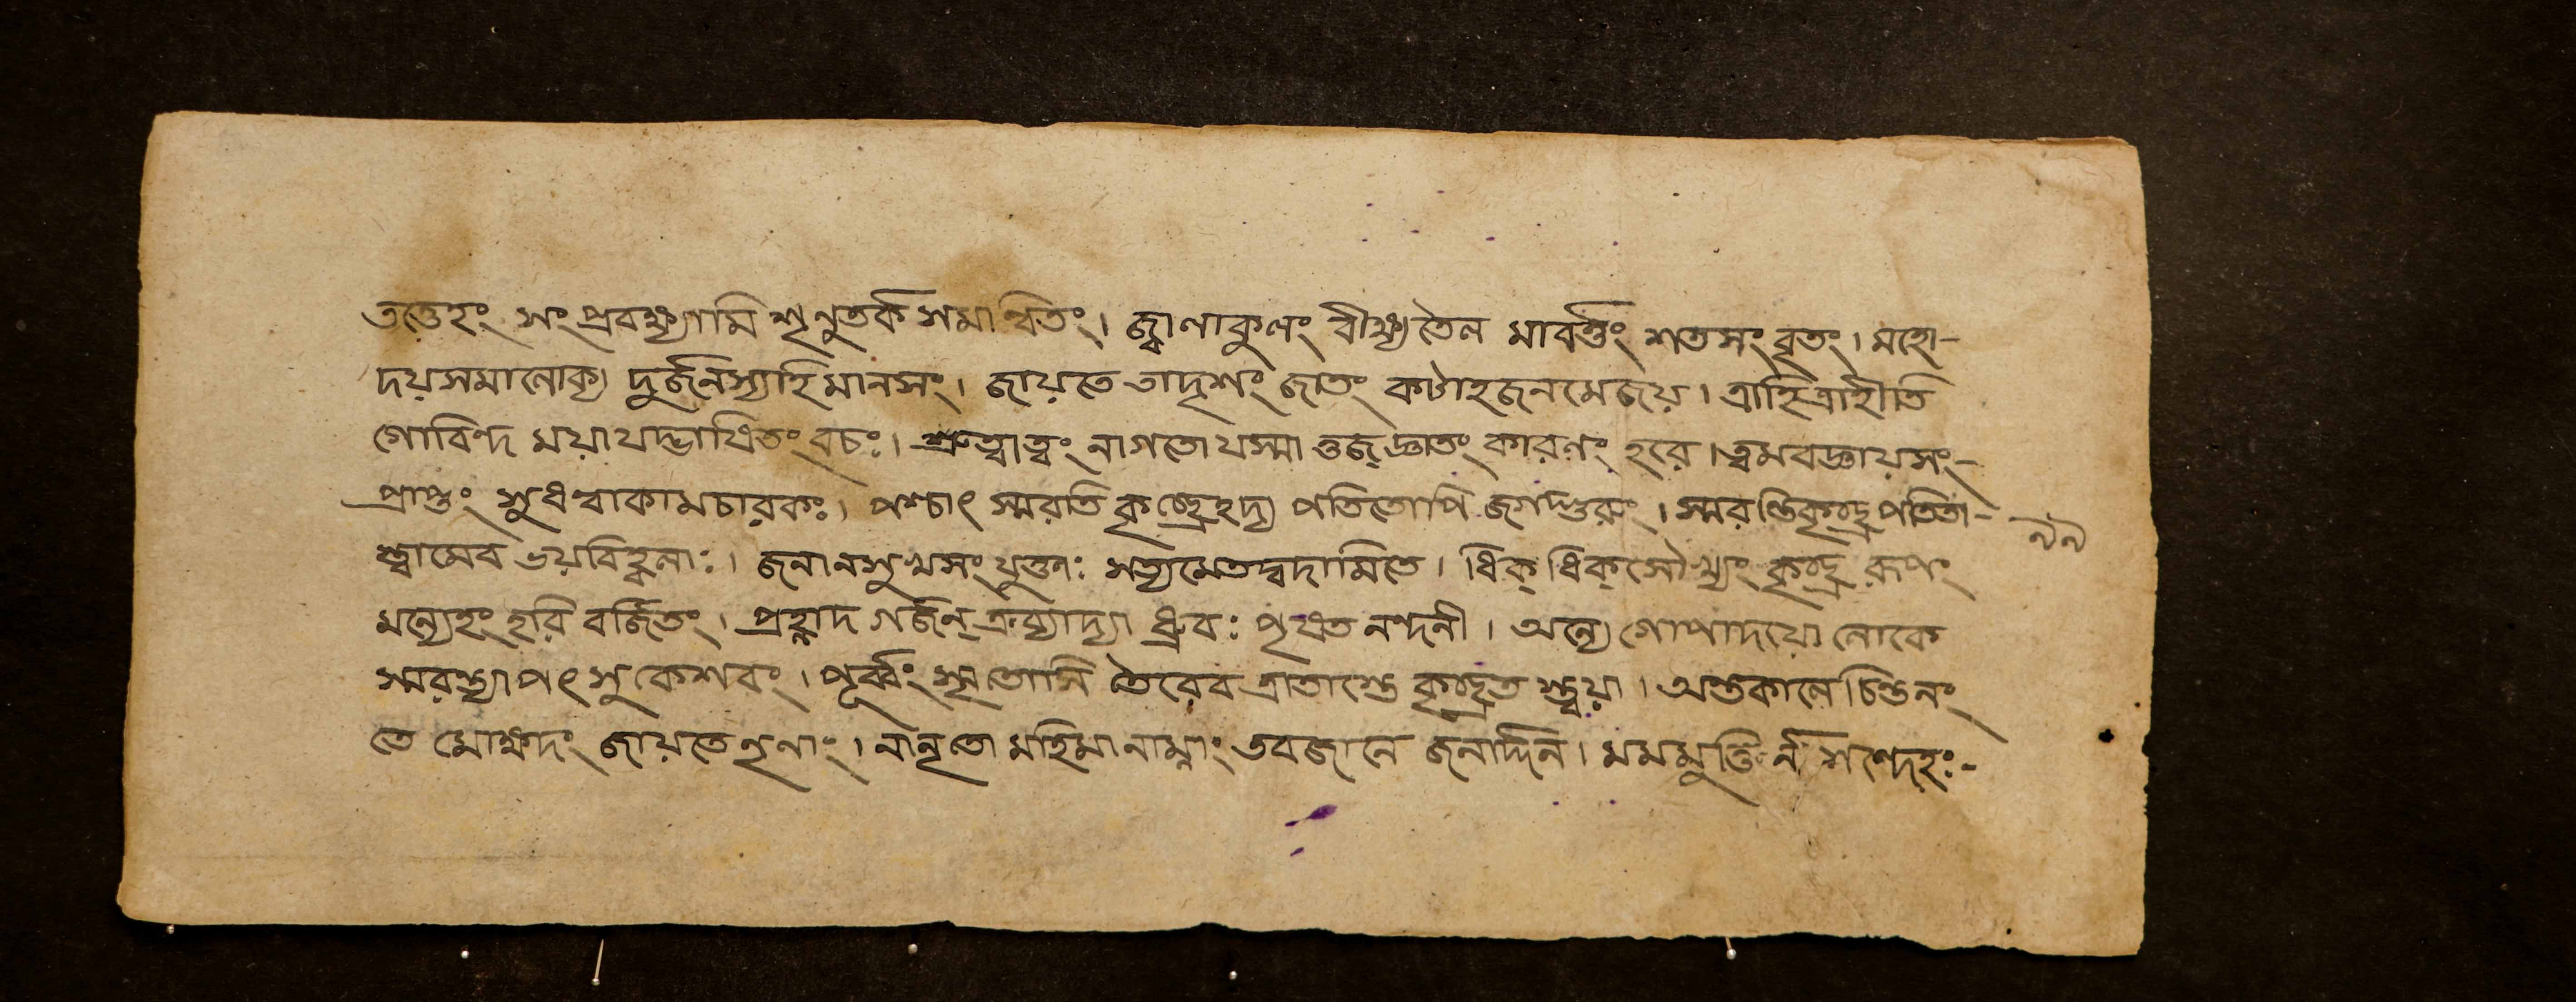 তত্তেহং সংপ্রবক্ষ্যামি শৃনুতর্কসমান্বিতং। জ্বালাকুলং বীক্ষ্যতৈল মাবর্ত্তং শতসংবৃতং। মহো-
দয়সমালোক্য দুর্জনস্যাহিমানসং। জায়তে তাদৃশং জাতং কটাহজনমেজয়। ত্রাহিত্রাহীতি
গোবিন্দ ময়াযদ্ভাষিতংবচঃ। শ্রুত্বাত্বং নাগতোযস্মা ত্তজ্জ্ঞাতং কারণং হরে। ত্বমবজ্ঞায়সং-
প্রাপ্তং সুধন্বাকামচারকঃ। পশ্চাৎ স্মরতি কৃচ্ছ্রেহদ্য পতিতোপি জগদ্গুরুং। স্মরন্তিকৃচ্ছ্রপতিতা-
স্ত্বামেব ভয়বিহ্বলাঃ। জনানসুখসংযুক্তাঃ সত্যমেতদ্বদামিতে। ধিক্ ধিক্সৌখ্যং কৃচ্ছ্র রূপং
মন্যেহং হরি বর্জিতং। প্রহ্লাদ গর্জন্ ক্রব্যাদ্যা ধ্রুবঃ পৃষত নন্দনী। অন্যে গোপাদয়ো লোকে
স্মরন্ত্যাপৎসুকেশবং। পূর্ব্বং স্মৃতোসি তৈরেব ত্রাতাস্তে কৃচ্ছ্রত স্ত্বয়া। অন্তকালে চিন্তনং
তে মোক্ষদং জায়তেনৃনাং। নানৃতো মহিমানাম্নাং তবজানে জনার্দ্দন। মমমুক্তি র্ন সন্দেহঃ-